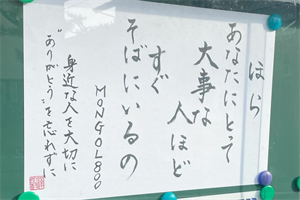 ほら
あなたにとって
大事な人ほど
すぐ
そばにいるの
MONGOL800
身近な人を大切に
"ありがとう"を忘れずに